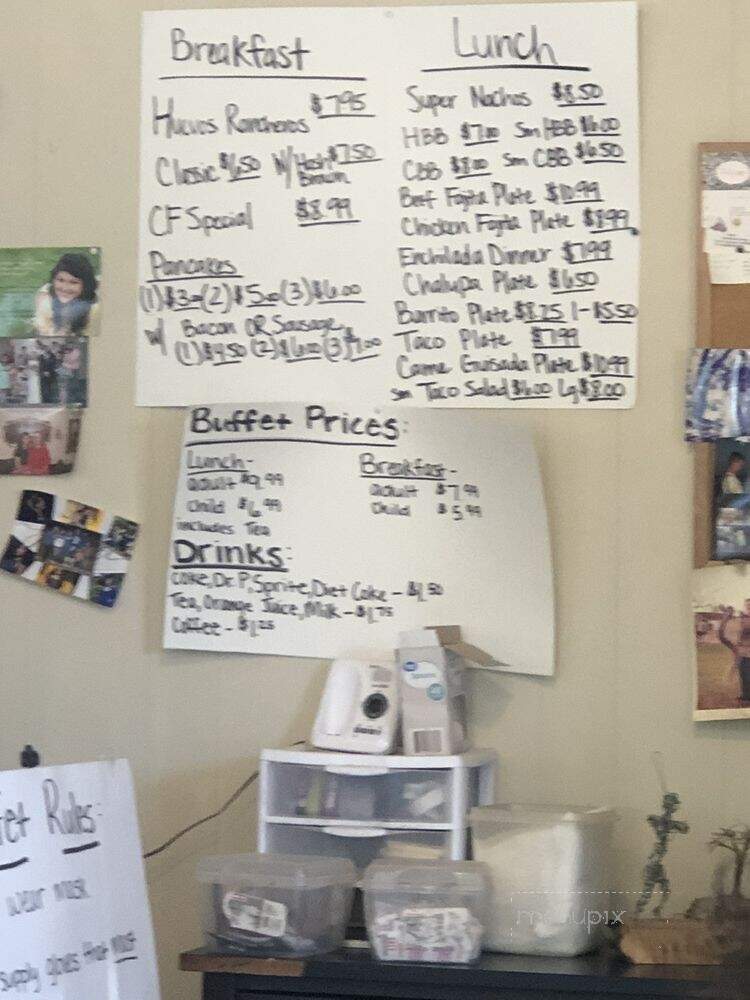 Breakfast
Huevos Rancheros $7.95
Classic $6.50 W/Hash Brown $7.50
CF Special $8.99
Pancakes
(1) $3.00 (2) $5.00 (3) $6.00
w/ Bacon OR Sausage
(1) $4.50 (2) $6.00 (3) $7.00
Lunch
Super Nachos $8.50
HBB $7.00 Sm HBB $6.00
CBB $8.00 Sm CBB $6.50
Beef Fajita Plate $10.99
Chicken Fajita Plate $8.99
Enchilada Dinner $7.99
Chalupa Plate $6.50
Burrito Plate $8.25 1-$5.50
Taco Plate $7.99
Carne Guisada Plate $10.99
Sm Taco Salad $6.00 Lg $8.00
Buffet Prices:
Lunch-
adult $9.99
child $6.99
includes Tea
Breakfast-
adult $7.99
child $5.99
Drinks:
Coke, Dr. P, Sprite, Diet Coke - $1.50
Tea, Orange Juice, Milk - $1.75
Coffee - $1.25
fet Rules:
wear mask
supply gloves that must
menupix